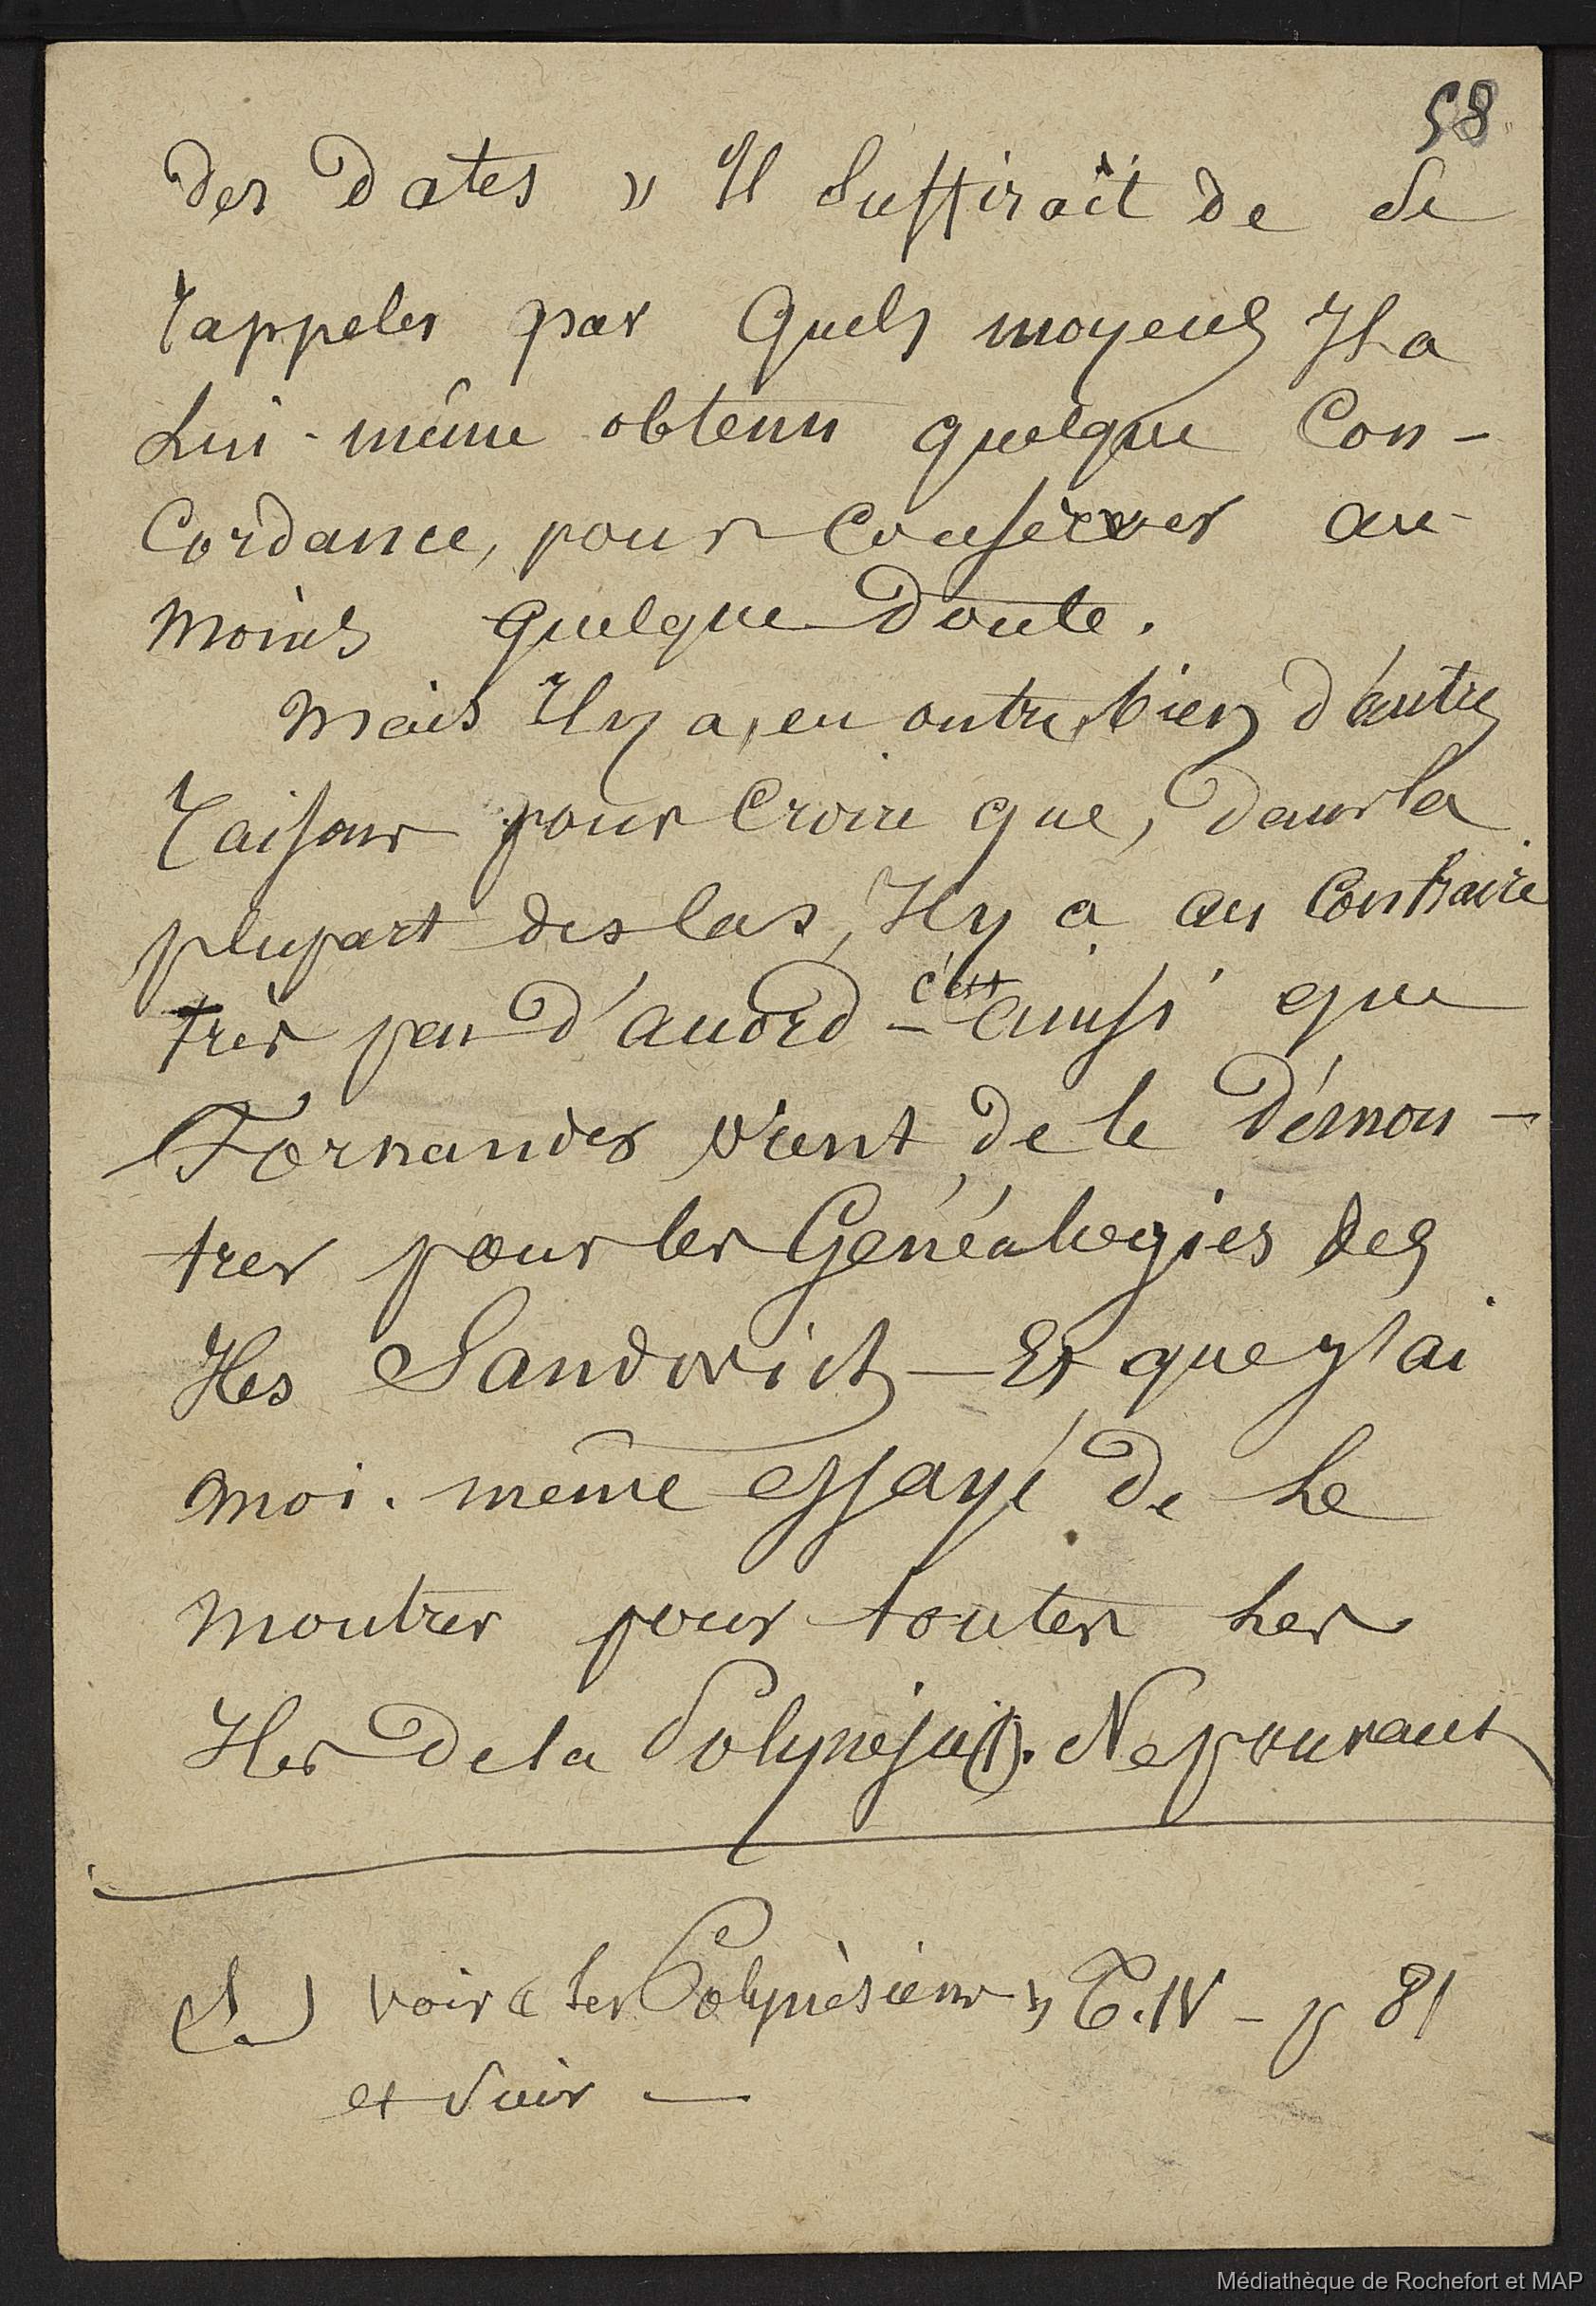 58
des Dates » Il suffirait de se
rappeler par quels moyens Il a
Lui-même obtenu quelque Con-
Cordance, pour Conserver au
moins quelque Doute.
Mais Il y a, en outre, bien d'autres
raisons pour Croire que, dans la
plupart des cas, Il y a au Contraire
très peu d'accord - c'est ainsi que
Fornander vient de le Démon-
trer pour les Généalogies des
Iles Sandwich — Et que j'ai
moi-même essayé de le
montrer pour toutes les
Iles de la Polynésie (1). Ne pouvant
(1) Voir « Les Polynèsiens » T. IV - p 81
et Suiv —
Médiathèque de Rochefort et MAP